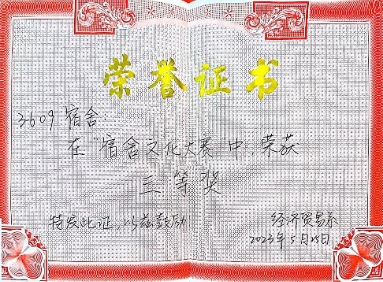 荣誉证书
3609宿舍:
在"宿舍文化大赛"中,荣获
三等奖
特发此证,以兹鼓励
经济贸易系
2023年5月25日